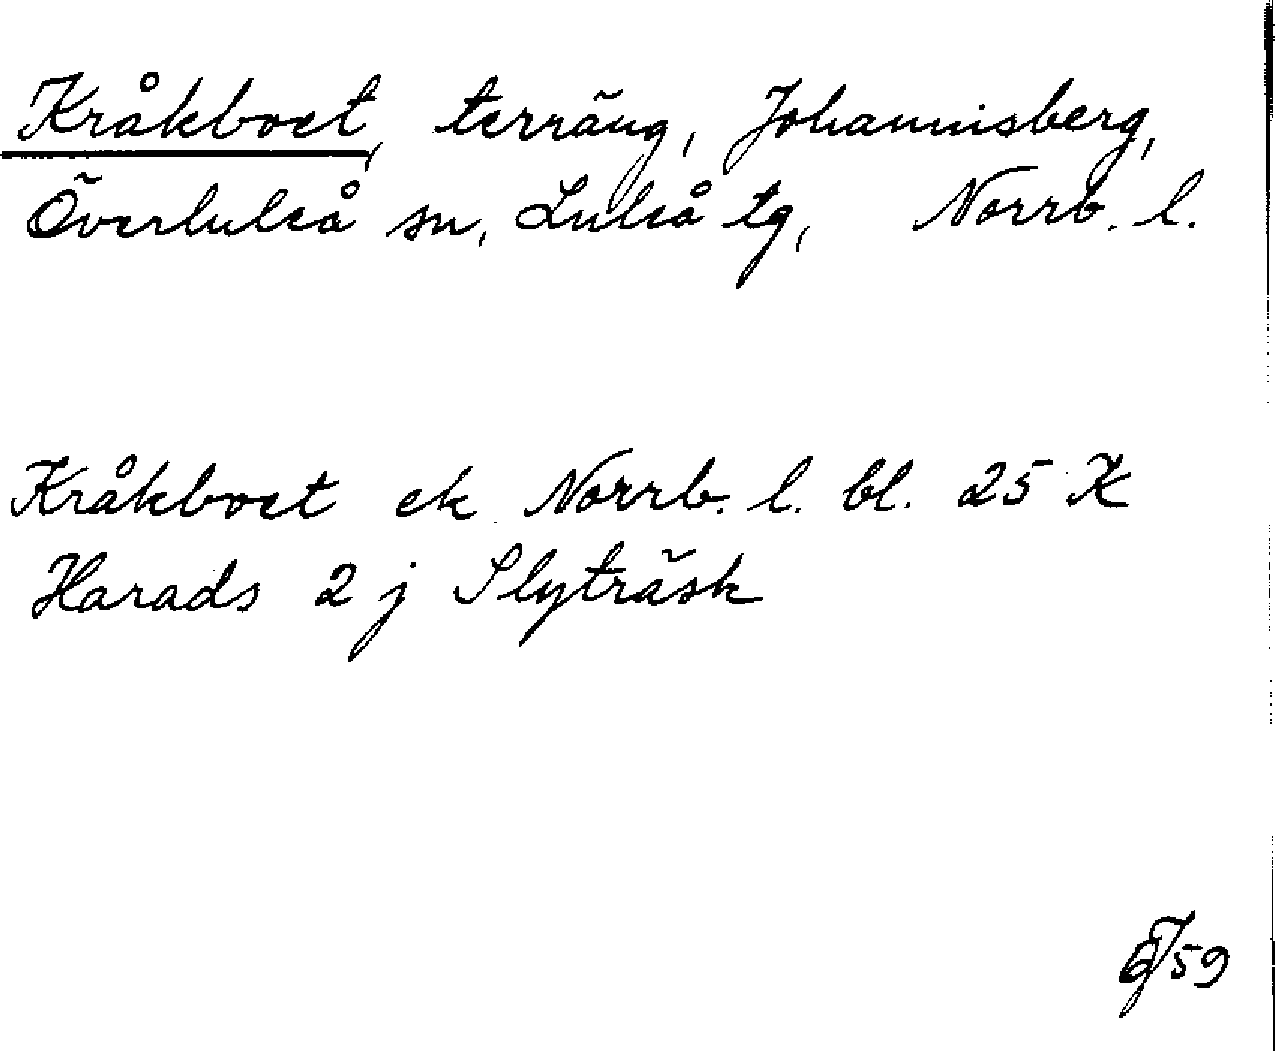 Kråkboet, terräng, Johannisberg,
Överluleå sn, Luleå tg, Norrb. l.
Kråkboet ek Norrb. l. bl. 25 K
Harads 2 j Slyträsk
59